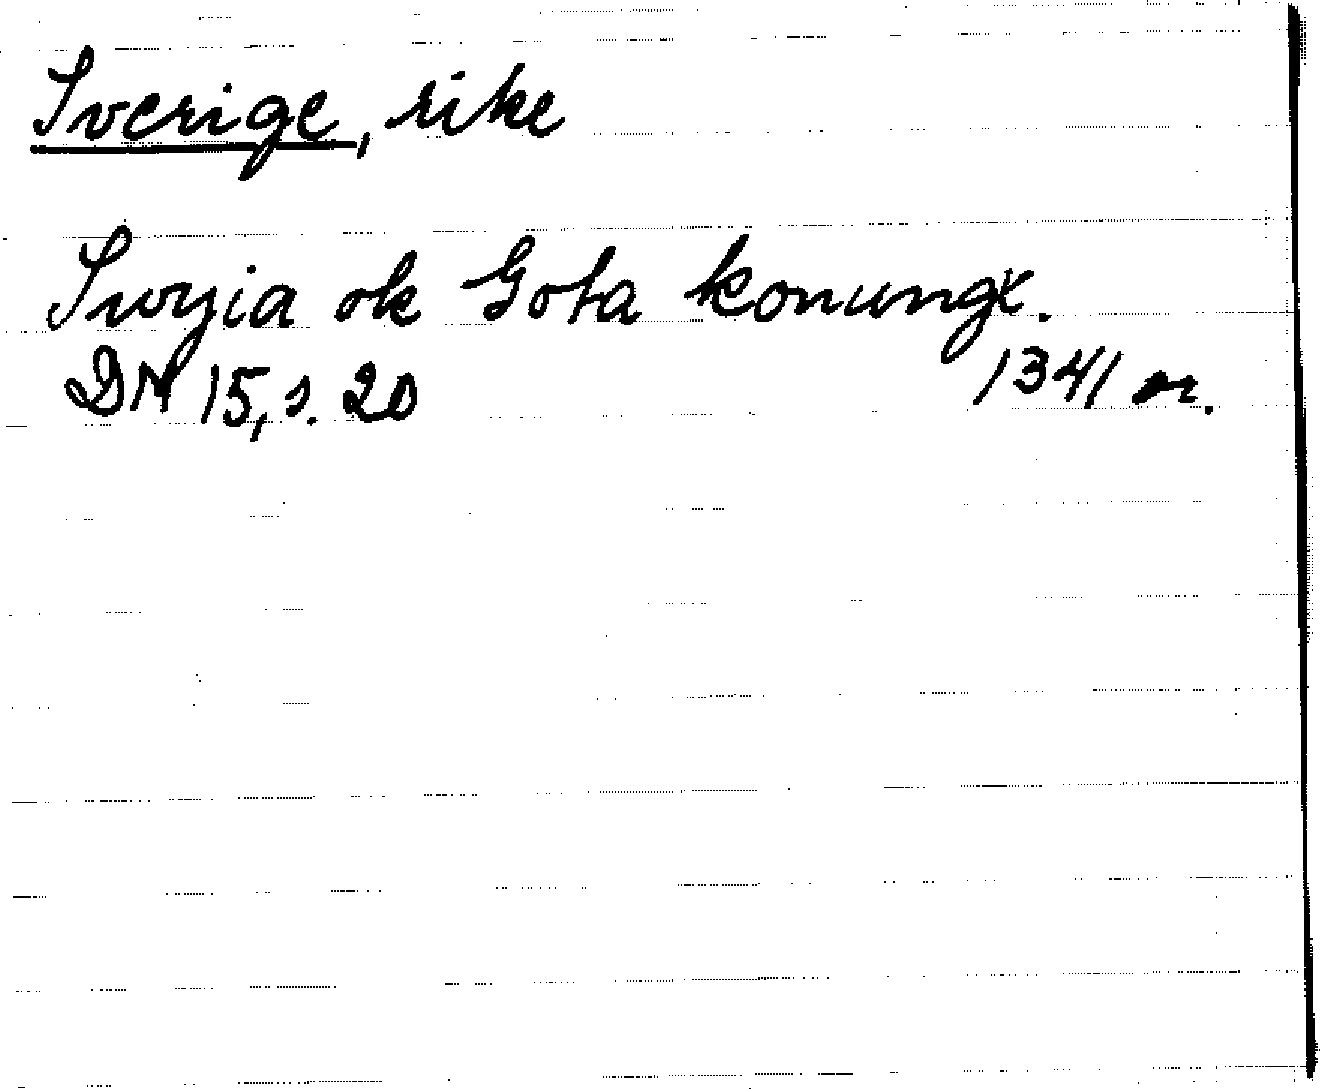 Sverige, rike
Swyia ok Gota konungx.
DN 15, s. 20 1341 or.